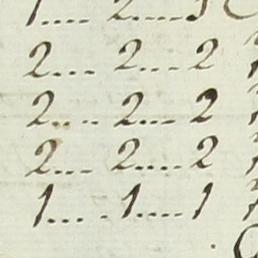 1.... 2....
2... 2... 2
2.... 2.... 2
2.... 2.... 2
1..... 1.... 1